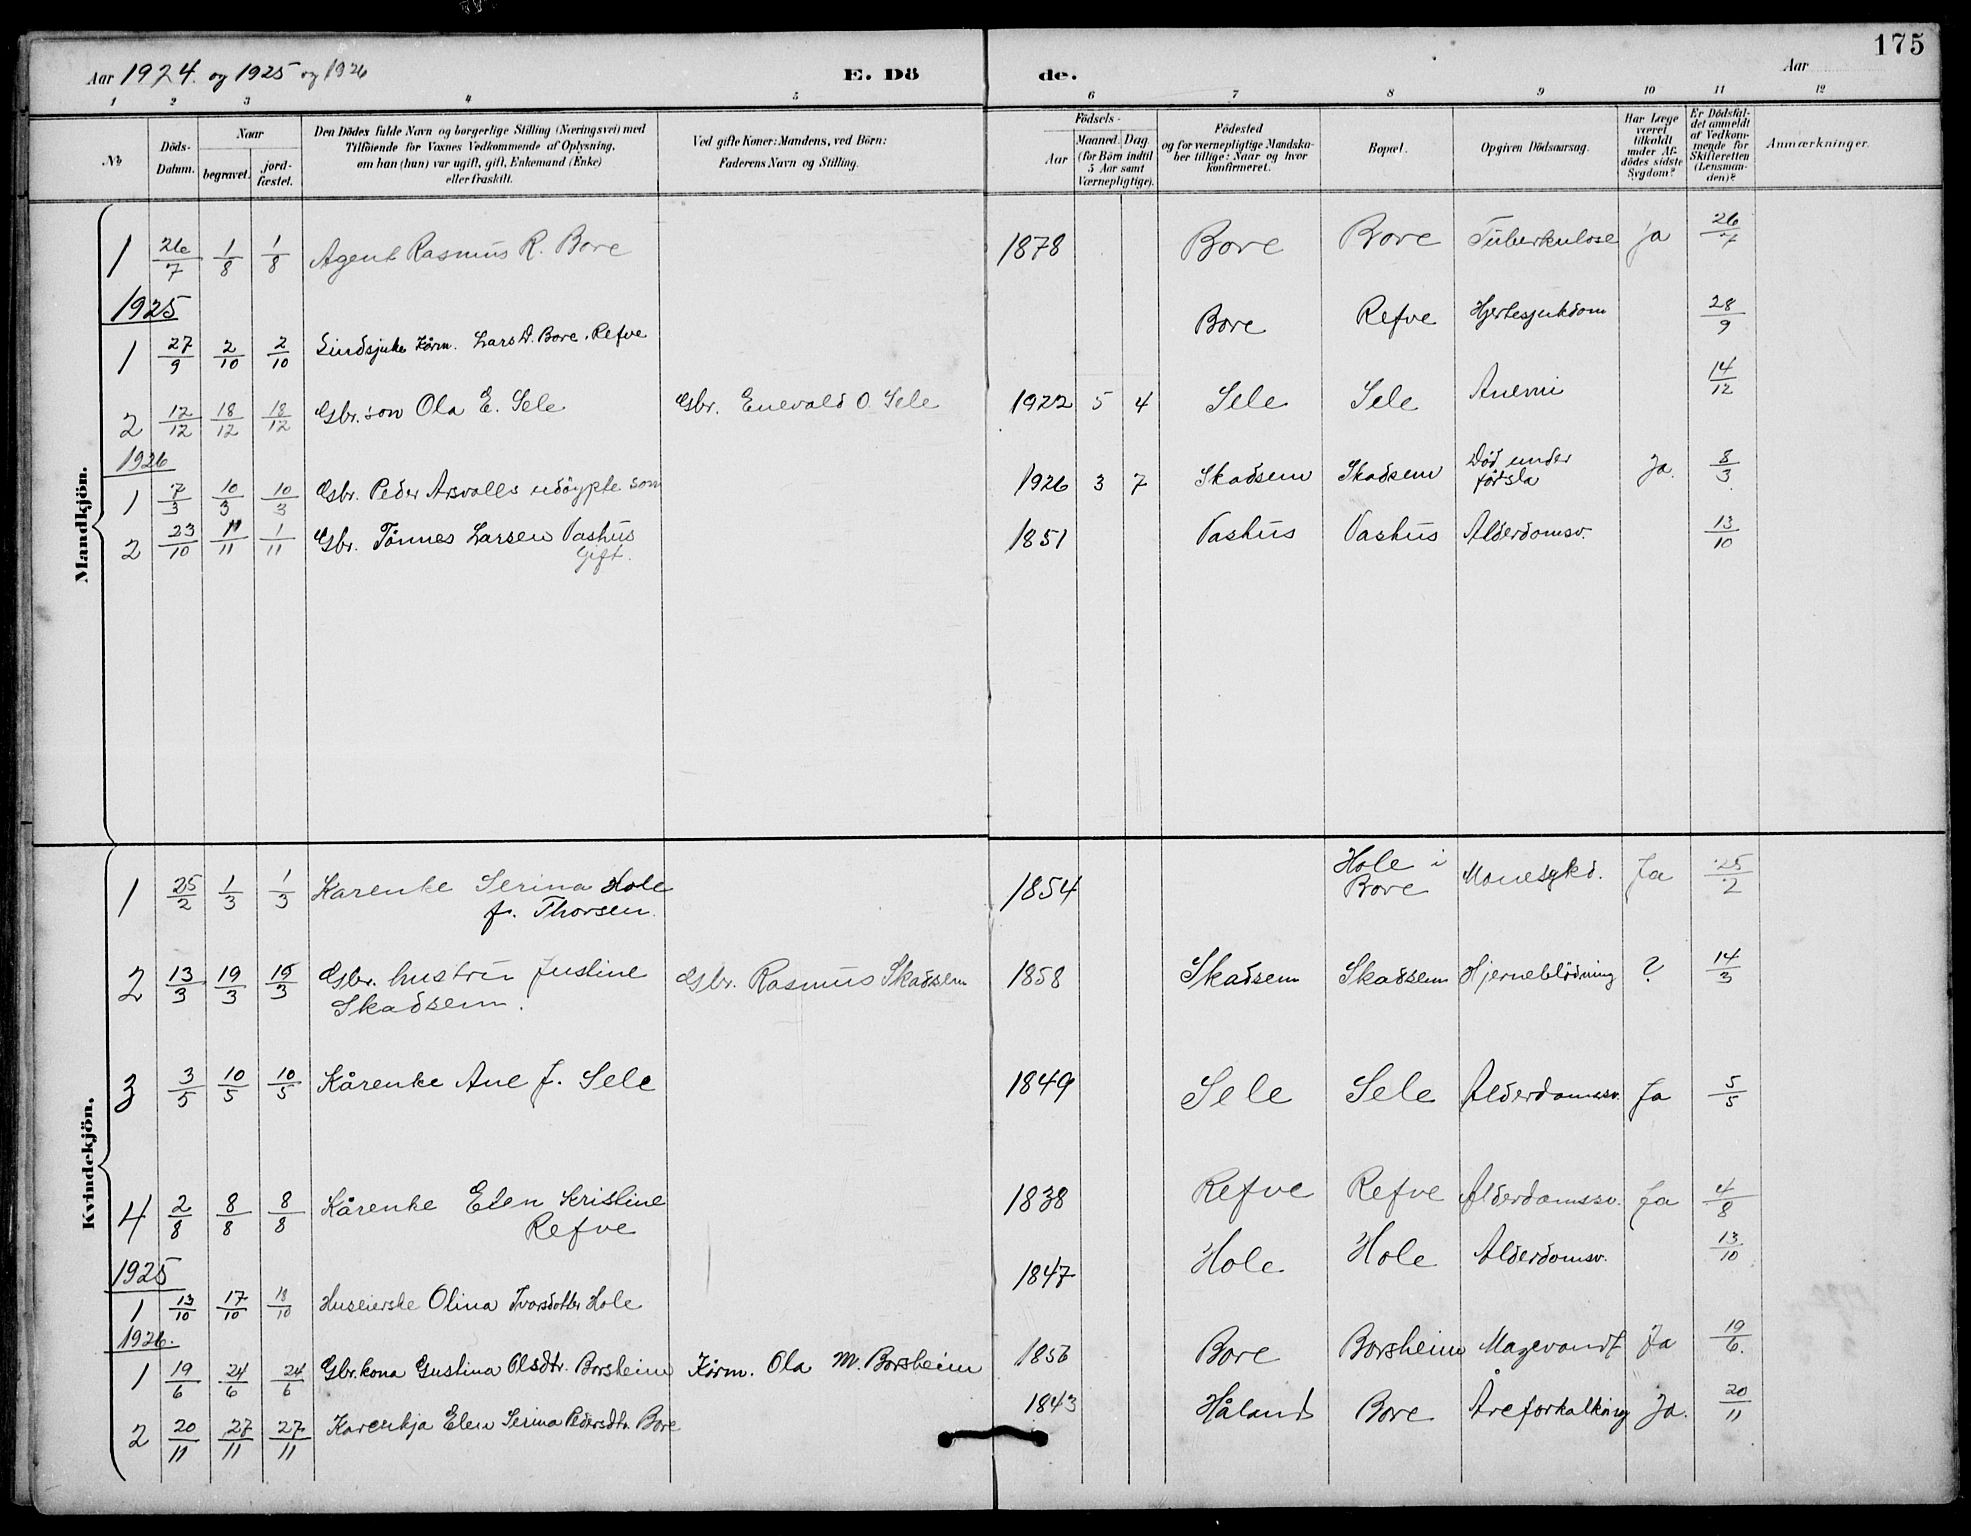 175
Aar 1924. og 1925 og 1926 E. Dö de. Aar
1 2 3 4 5 6 7 8 9 10 11 12
No
Döds-Datum.
Naar
begravet.
jord-fæstet.
Den Dödes fulde Navn og borgerlige Stilling (Næringsvei) med
Tilföiende for Voxnes Vedkommende af Oplysning,
om han (hun) var ugift, gift, Enkemand (Enke)
eller fraskilt.
Ved gifte Koner: Mandens, ved Börn:
Faderens Navn og Stilling.
Födsels-
Aar
Maaned. Dag
(for Börn indtil
5 Aar samt
Værnepligtige).
Födested
og for værnepligtige Mandska-
ber tillige: Naar og hvor
konfirmeret.
Bopæl.
Opgiven Dödsaarsag.
Har Læge
været
tilkaldt
under Af-
dödes sidste
Sygdom?
Er Dödsfal-
det anmeldt
af Vedkom-
mende for
Skifteretten
(Lensman-
den)?
Anmærkninger.
Mandkjön.
1 26/7 1/8 1/8 Agent Rasmus R. Bore 1878 Bore Bore Tuberkulose Ja 26/7
1925
1 27/9 2/10 2/10 Sindsjuke Kårm. Lars D. Bore. Refve Bore Refve Hjertesjukdom 28/9
2 12/12 18/12 18/12 Gbr. son Ola E. Sele Gbr. Enevald O. Sele 1922 5 4 Sele Sele Anemi 14/12
1926
1 7/3 10/3 10/3 Gbr. Peder Arsvolls udöypte son 1926 3 7 Skadsem Skadsem Död under
försla Ja. 8/3
2 23/10 1/11 1/11 Gbr. Tönnes Larsen Vashus
Gift. 1851 Vashus Vashus Alderdomsv. 13/10
Kvindekjön.
1 25/2 1/3 1/3 Karenke Serina Hole
f. Thorsen. 1854 Hole i
Bore Mavesykd. Ja 25/2
2 13/3 19/3 19/3 Gbr. hustru Justine
Skadsem. Gbr. Rasmus Skadsem 1858 Skadsem Skadsem Hjerneblödning ? 14/3
3 3/5 10/5 10/5 Kårenke Ane J. Sele 1849 Sele Sele Alderdomssv. Ja 5/5
4 2/8 8/8 8/8 Kårenke Elen Kristine
Refve 1838 Refve Refve Alderdomssv. Ja 4/8
1925
1 13/10 17/10 18/10 Huseierske Olina Ivarsdotter Hole 1847 Hole Hole Alderdomsv. 13/10
1926.
1 19/6 24/6 24/6 Gbr. kona Gustina Olsdtr. Borsheim Kårm. Ola M. Borsheim 1856 Bore Borsheim Magevondt Ja 19/6.
2 20/11 27/11 27/11 Karenkja Elen Serina Pedersdtr. Bore 1843 Håland Bore Åreforkalking Ja. 20/11